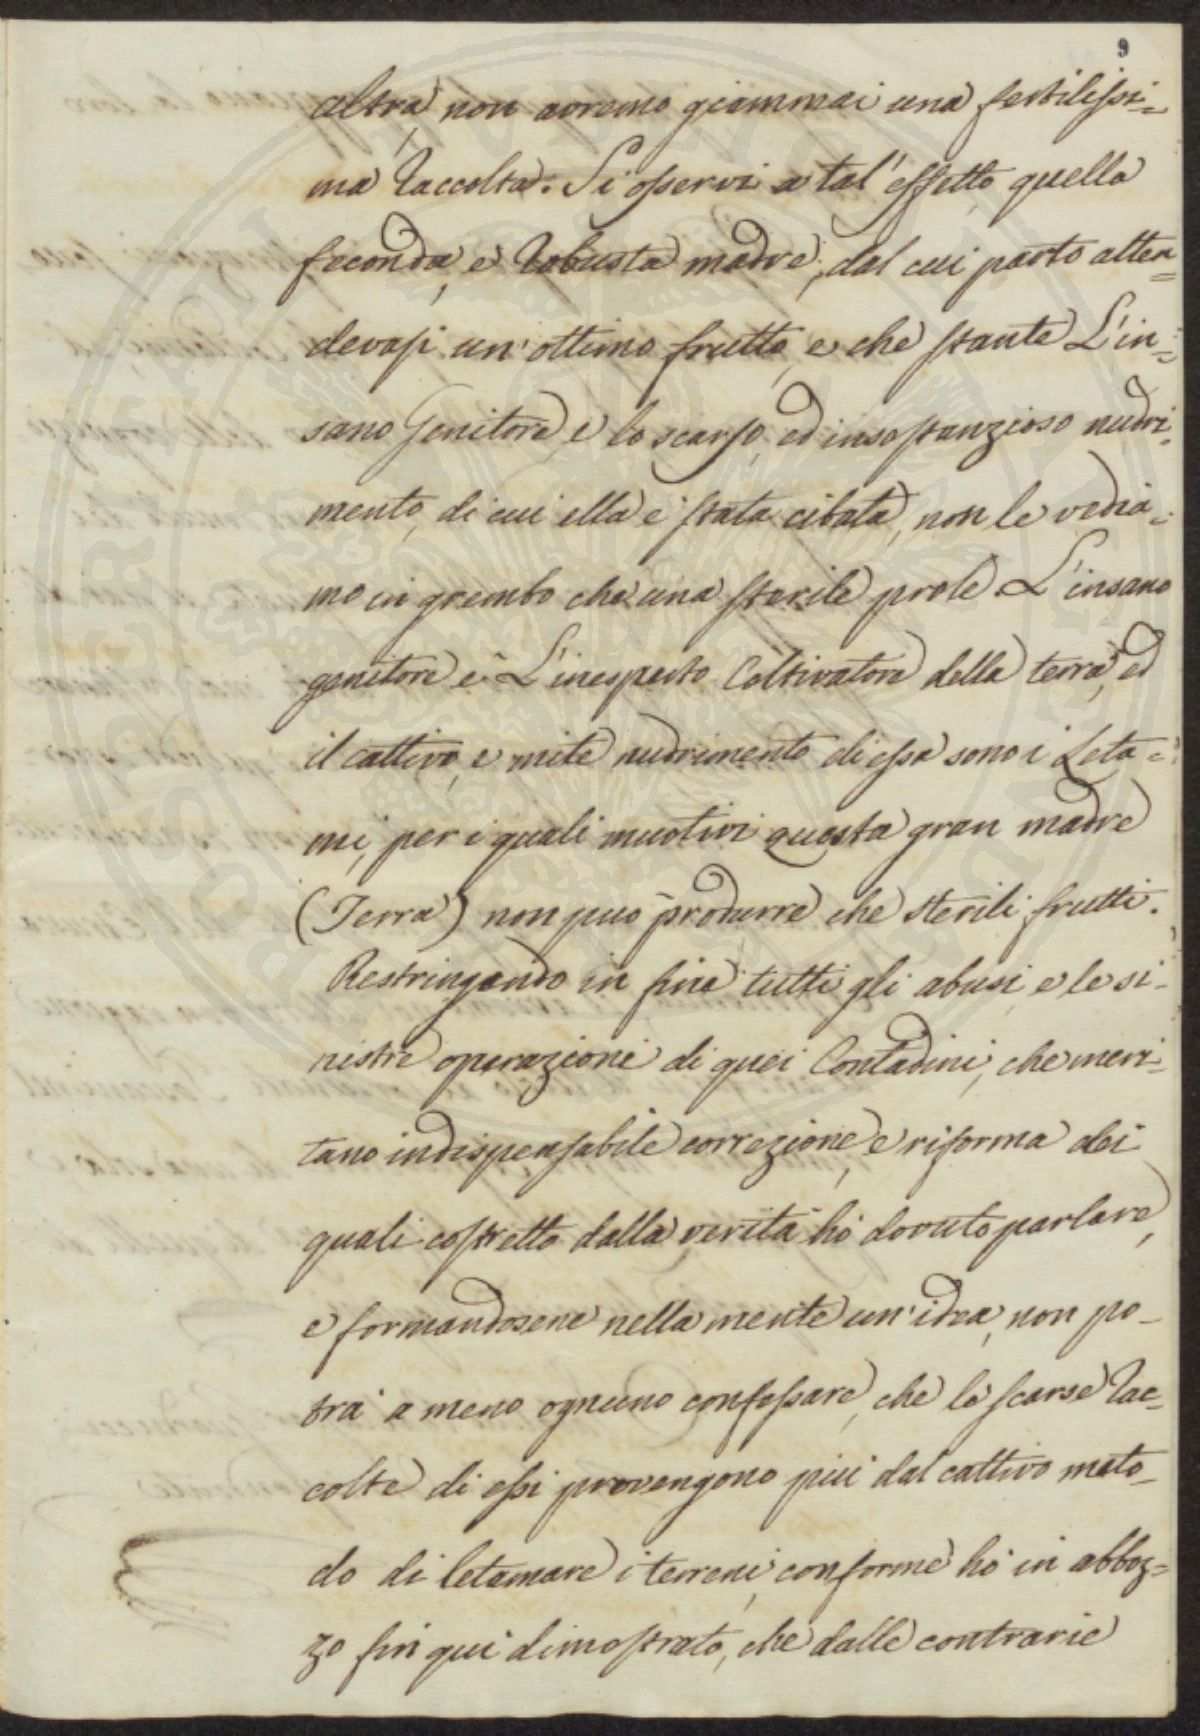 9
altra, non avremo giammai una fertilissi-
ma Raccolta. Si osservi a tal' effetto quella
feconda, e robusta madre, dal cui parto atten=
devasi un' ottimo frutto, e che stante L'in=
sano Genitore, e lo scarso, ed insostanzioso nudri-
mento, di cui ella è stata cibata, non le vedia=
mo in grembo che una sterile prole. L'insano
genitore è L'inesperto Coltivatore della terra, ed
il cattivo, e mite nudrimento di essa sono i Leta=
mi, per i quali muotivi questa gran madre
(Terra) non può produrre che sterili frutti.
Restringendo in fine tutti gli abusi, e le si-
nistre operazioni di quei Contadini, che meri-
tano indispensabile correzione, e riforma dei
quali costretto dalla verità hò dovuto parlare,
e formandosene nella mente un' idea, non po-
trà a meno ognuno confessare, che le scarse Rac=
colte di essi provengono più dal cattivo meto-
do di letamare i terreni, conforme hò in abboz=
zo fin qui dimostrato, che dalle contrarie